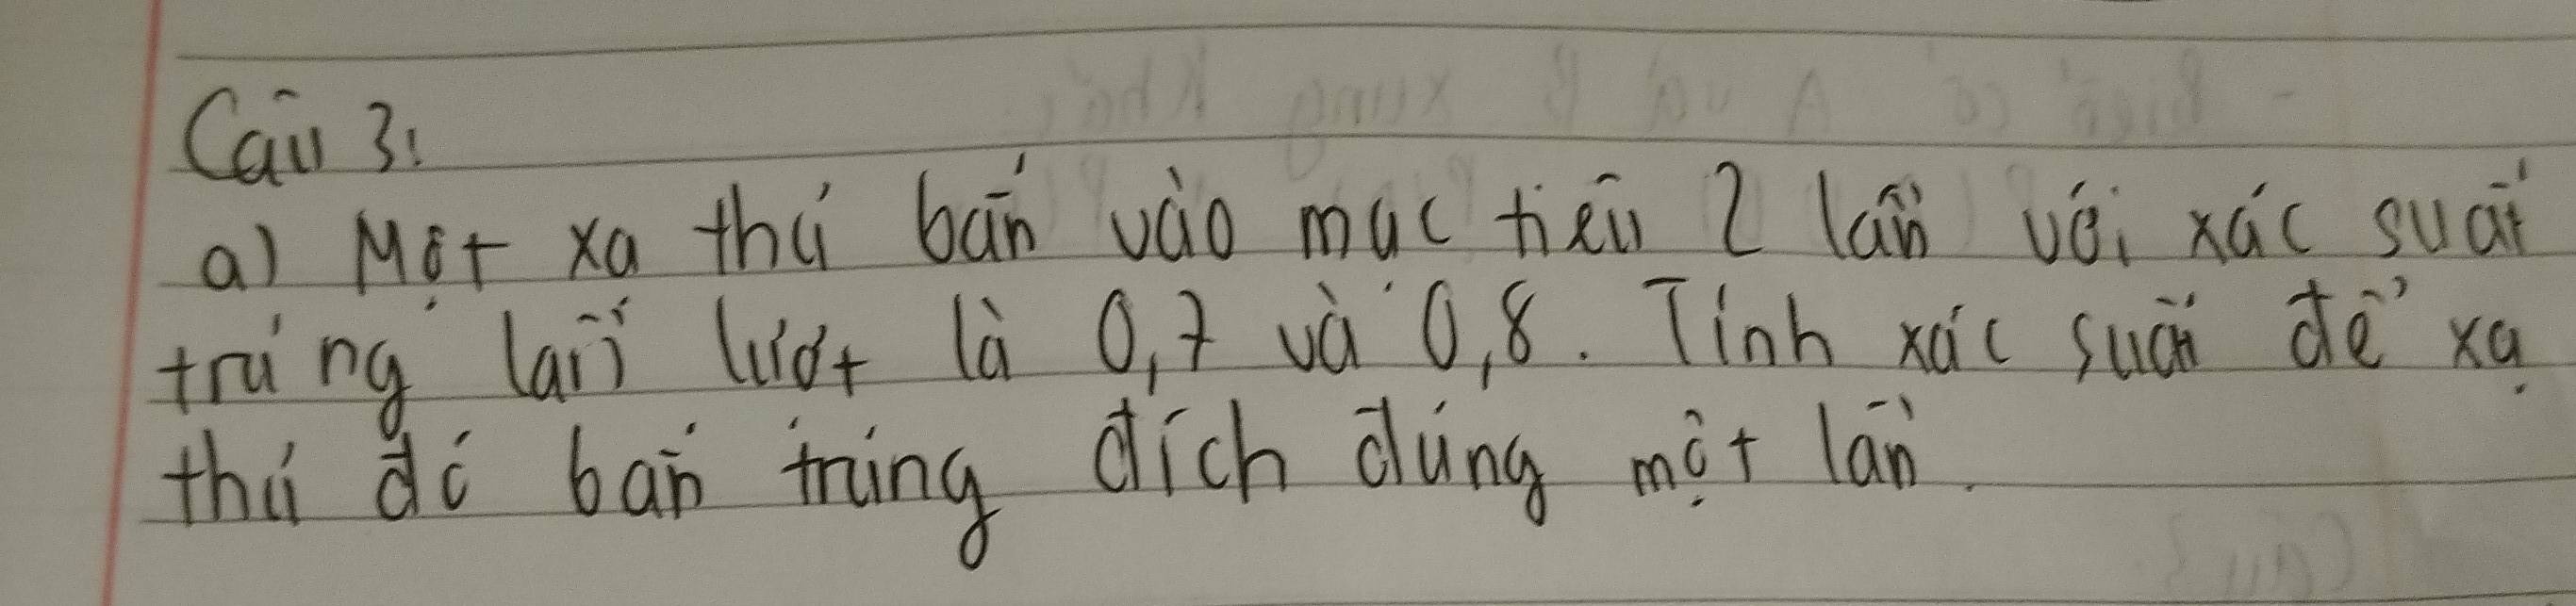 Câu 3:
a) Một xạ thủ bắn vào mục tiêu 2 lần với xác suất
trúng lần lượt là 0,7 và 0,8. Tính xác suất để xạ
thủ đó bắn trúng đích đúng một lần.